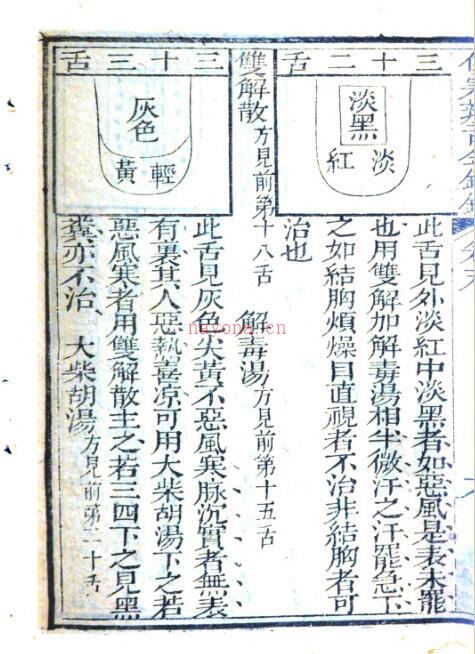 三十二舌
淡黑
淡紅
此舌見外淡紅中淡黑者如惡風是表未罷
也用雙解加解毒湯相半微汗之汗罷急下
之如結胸煩燥目直視者不治非結胸者可
治也
雙解散方見前第十八舌 解毒湯方見前第十五舌
三十三舌
灰色
輕黃
此舌見灰色尖黃不惡風寒脉沉實者無表
有裏其人惡熱喜凉可用大柴胡湯下之若
惡風寒者用雙解散主之若三四下之見黑
糞亦不治 大柴胡湯方見前第二十舌
nayona.cn